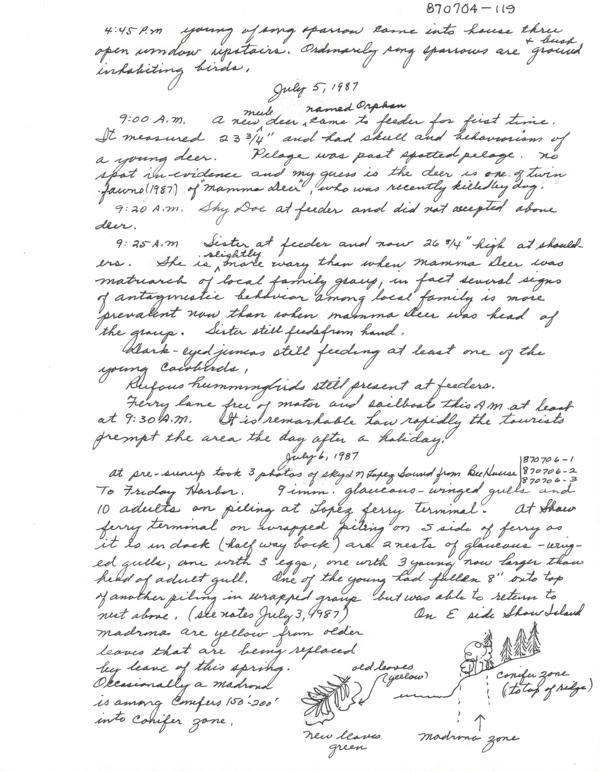 870704-119
4:45 P.m young of song sparrow came into house thru
open window upstairs. Ordinarily song sparrows are ground
& bush
inhabiting birds.
July 5, 1987
9:00 A.M. A new mule deer named Orphan came to feeder for first time.
It measured 23 3/4" and had skull and behaviorism of
a young deer. Pelage was past spotted pelage. no
spot in evidence and my guess is the deer is one of twin
fawns (1987) of "Mamma Deer", who was recently killed by dog.
9:20 A.M. Shy Doe at feeder and did not accepted above
deer.
9:25 A.M Sister at feeder and now 26 3/4" high at should-
ers. She is slightly more wary than when Mamma Deer was
matriarch of local family group, in fact several signs
of antagonistic behavior among local family is more
prevalent now than when mamma Deer was head of
the group. Sister still feeds from hand.
Dark-eyed juncos still feeding at least one of the
young Cowbirds.
Rufous hummingbirds still present at feeders.
Ferry lane free of motor and sailboats this A.M at least
at 9:30 A.M. It is remarkable how rapidly the tourists
prempt the area the day after a holiday.
July 6, 1987
At pre-sunup took 3 photos of sky'd N Lopez Sound from Bee House
870706-1
870706-2
870706-3
To Friday Harbor. 9 imm. glaucous-winged gulls and
10 adults on piling at Lopez ferry terminal. At Shaw
ferry terminal on wrapped piling on S side of ferry as
it is in dock (half way back) are 2 nests of glaucous-wing-
ed gulls, one with 3 eggs, one with 3 young now larger than
head of adult gull. One of the young had fallen 8" onto top
of another piling in wrapped group but was able to return to
nest above. (see notes July 3, 1987) On E side Shaw Island
madrona are yellow from older
leaves that are being replaced
by leave of this spring.
Occasionally a madrona
is among conifers 150'-200'
into conifer zone.
old leaves
(yellow)
new leaves
green
conifer zone
(to top of ridge)
madrona zone